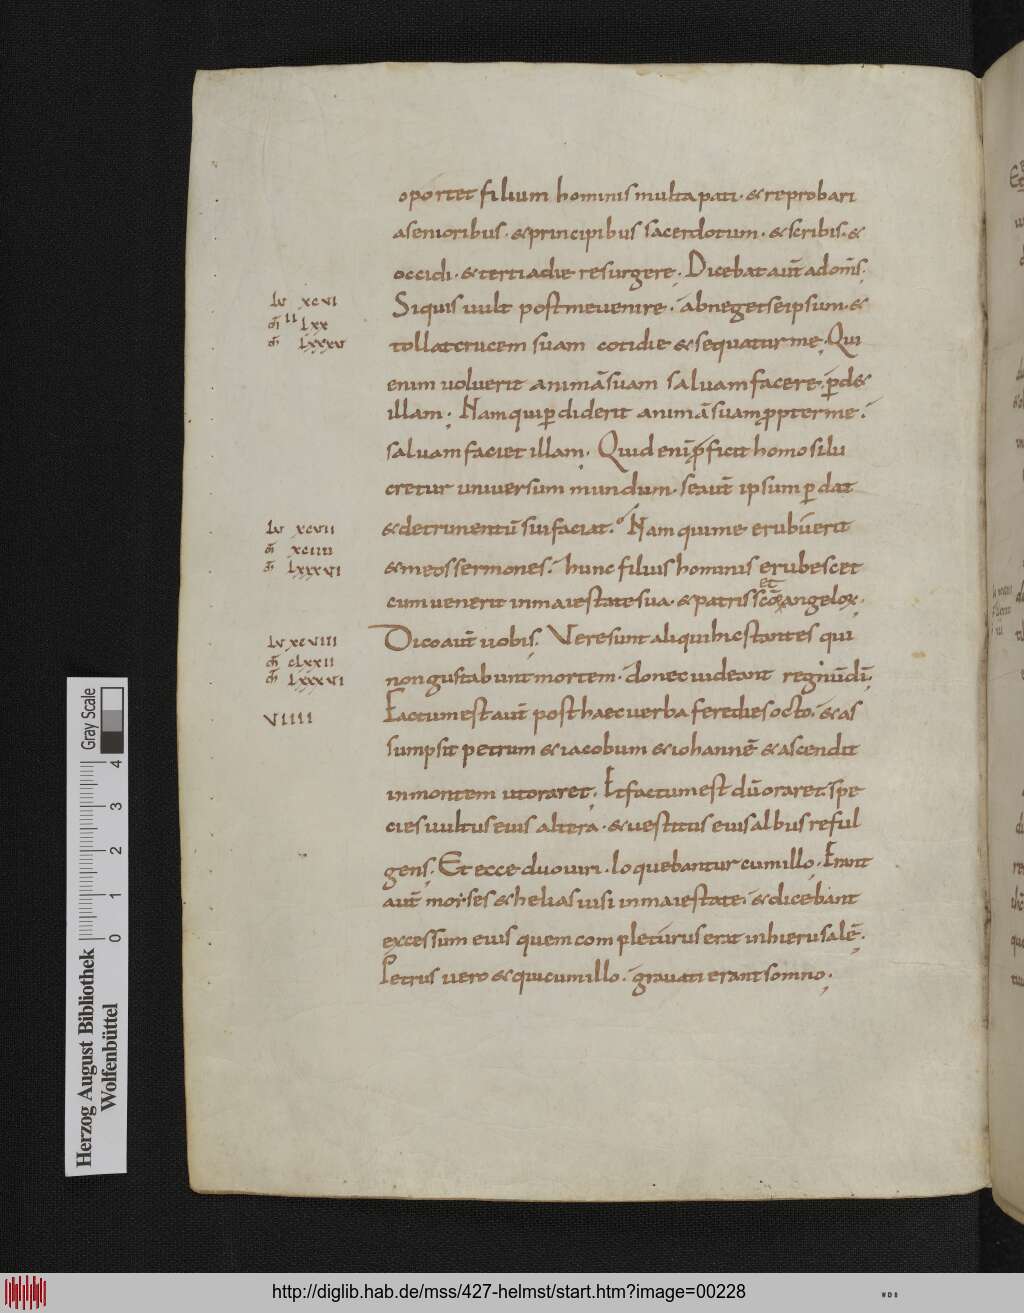 oportet filium hominis multa pati · & reprobari
a senioribus · & principibus sacerdotum · & scribis · &
occidi · & tertia die resurgere · Dicebat aut̄ ad om̄s ·
lu xcvi
Siquis vult post me uenire · abneget se ipsum · &
m̄ lxx
tollat crucem suam cotidie & sequatur me · Qui
lxxxv
enim uoluerit animā suam saluam facere · ꝑd&
illam · Nam qui ꝑdiderit animā suam ꝓpter me ·
saluam faciet illam · Quid enī ꝓficit homo si lu
cretur uniuersum mundum · se aut̄ ipsum ꝑdat
lu xcvii
& detrimentū sui faciat · Nam qui me erubuerit
m̄ xciiii
& meos sermones · hunc filius hominis erubescet
lxxxvi
cum uenerit in maiestate sua · & patris et scōꝝ angeloꝝ ·
lu xcviii
Dico aut̄ uobis · Vere sunt aliqui hic stantes qui
m̄ clxxii
non gustabunt mortem · donec uideant regnū dī ·
lxxxvi
Factum est aut̄ post haec uerba fere dies octo · & as
viiii
sumpsit petrum & iacobum & iohannē & ascendit
in montem ut oraret · Et factum est dū oraret · spe
cies uultus eius altera · & uestitus eius albus reful
gens · Et ecce duo uiri · loquebantur cum illo · Erant
aut̄ moyses & helias uisi in maiestate · & dicebant
excessum eius quem completurus erat in hierusalē ·
Petrus uero & qui cum illo · grauati erant somno ·
Gray Scale
0 1 2 3 4
Herzog August Bibliothek
Wolfenbüttel
http://diglib.hab.de/mss/427-helmst/start.htm?image=00228